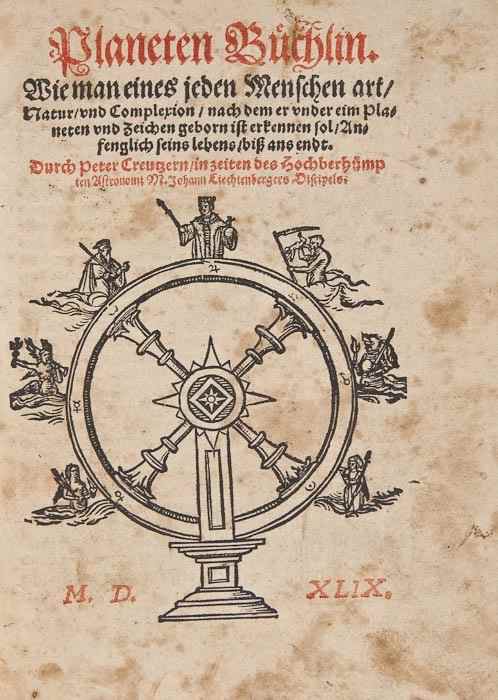 Planeten Bůchlin.
Wie man eines jeden Menschen art/
Natur/vnd Complexion/nach dem er vnder eim Pla-
neten vnd Zeichen geborn ist erkennen sol/An-
fenglich seins lebens/biß ans endt.
Durch Peter Creutzern/in zeiten des Hochberhůmp
ten Astronomi M. Johann Liechtenbergers Discipels.
♃
☿
♀
M. D. XLIX.